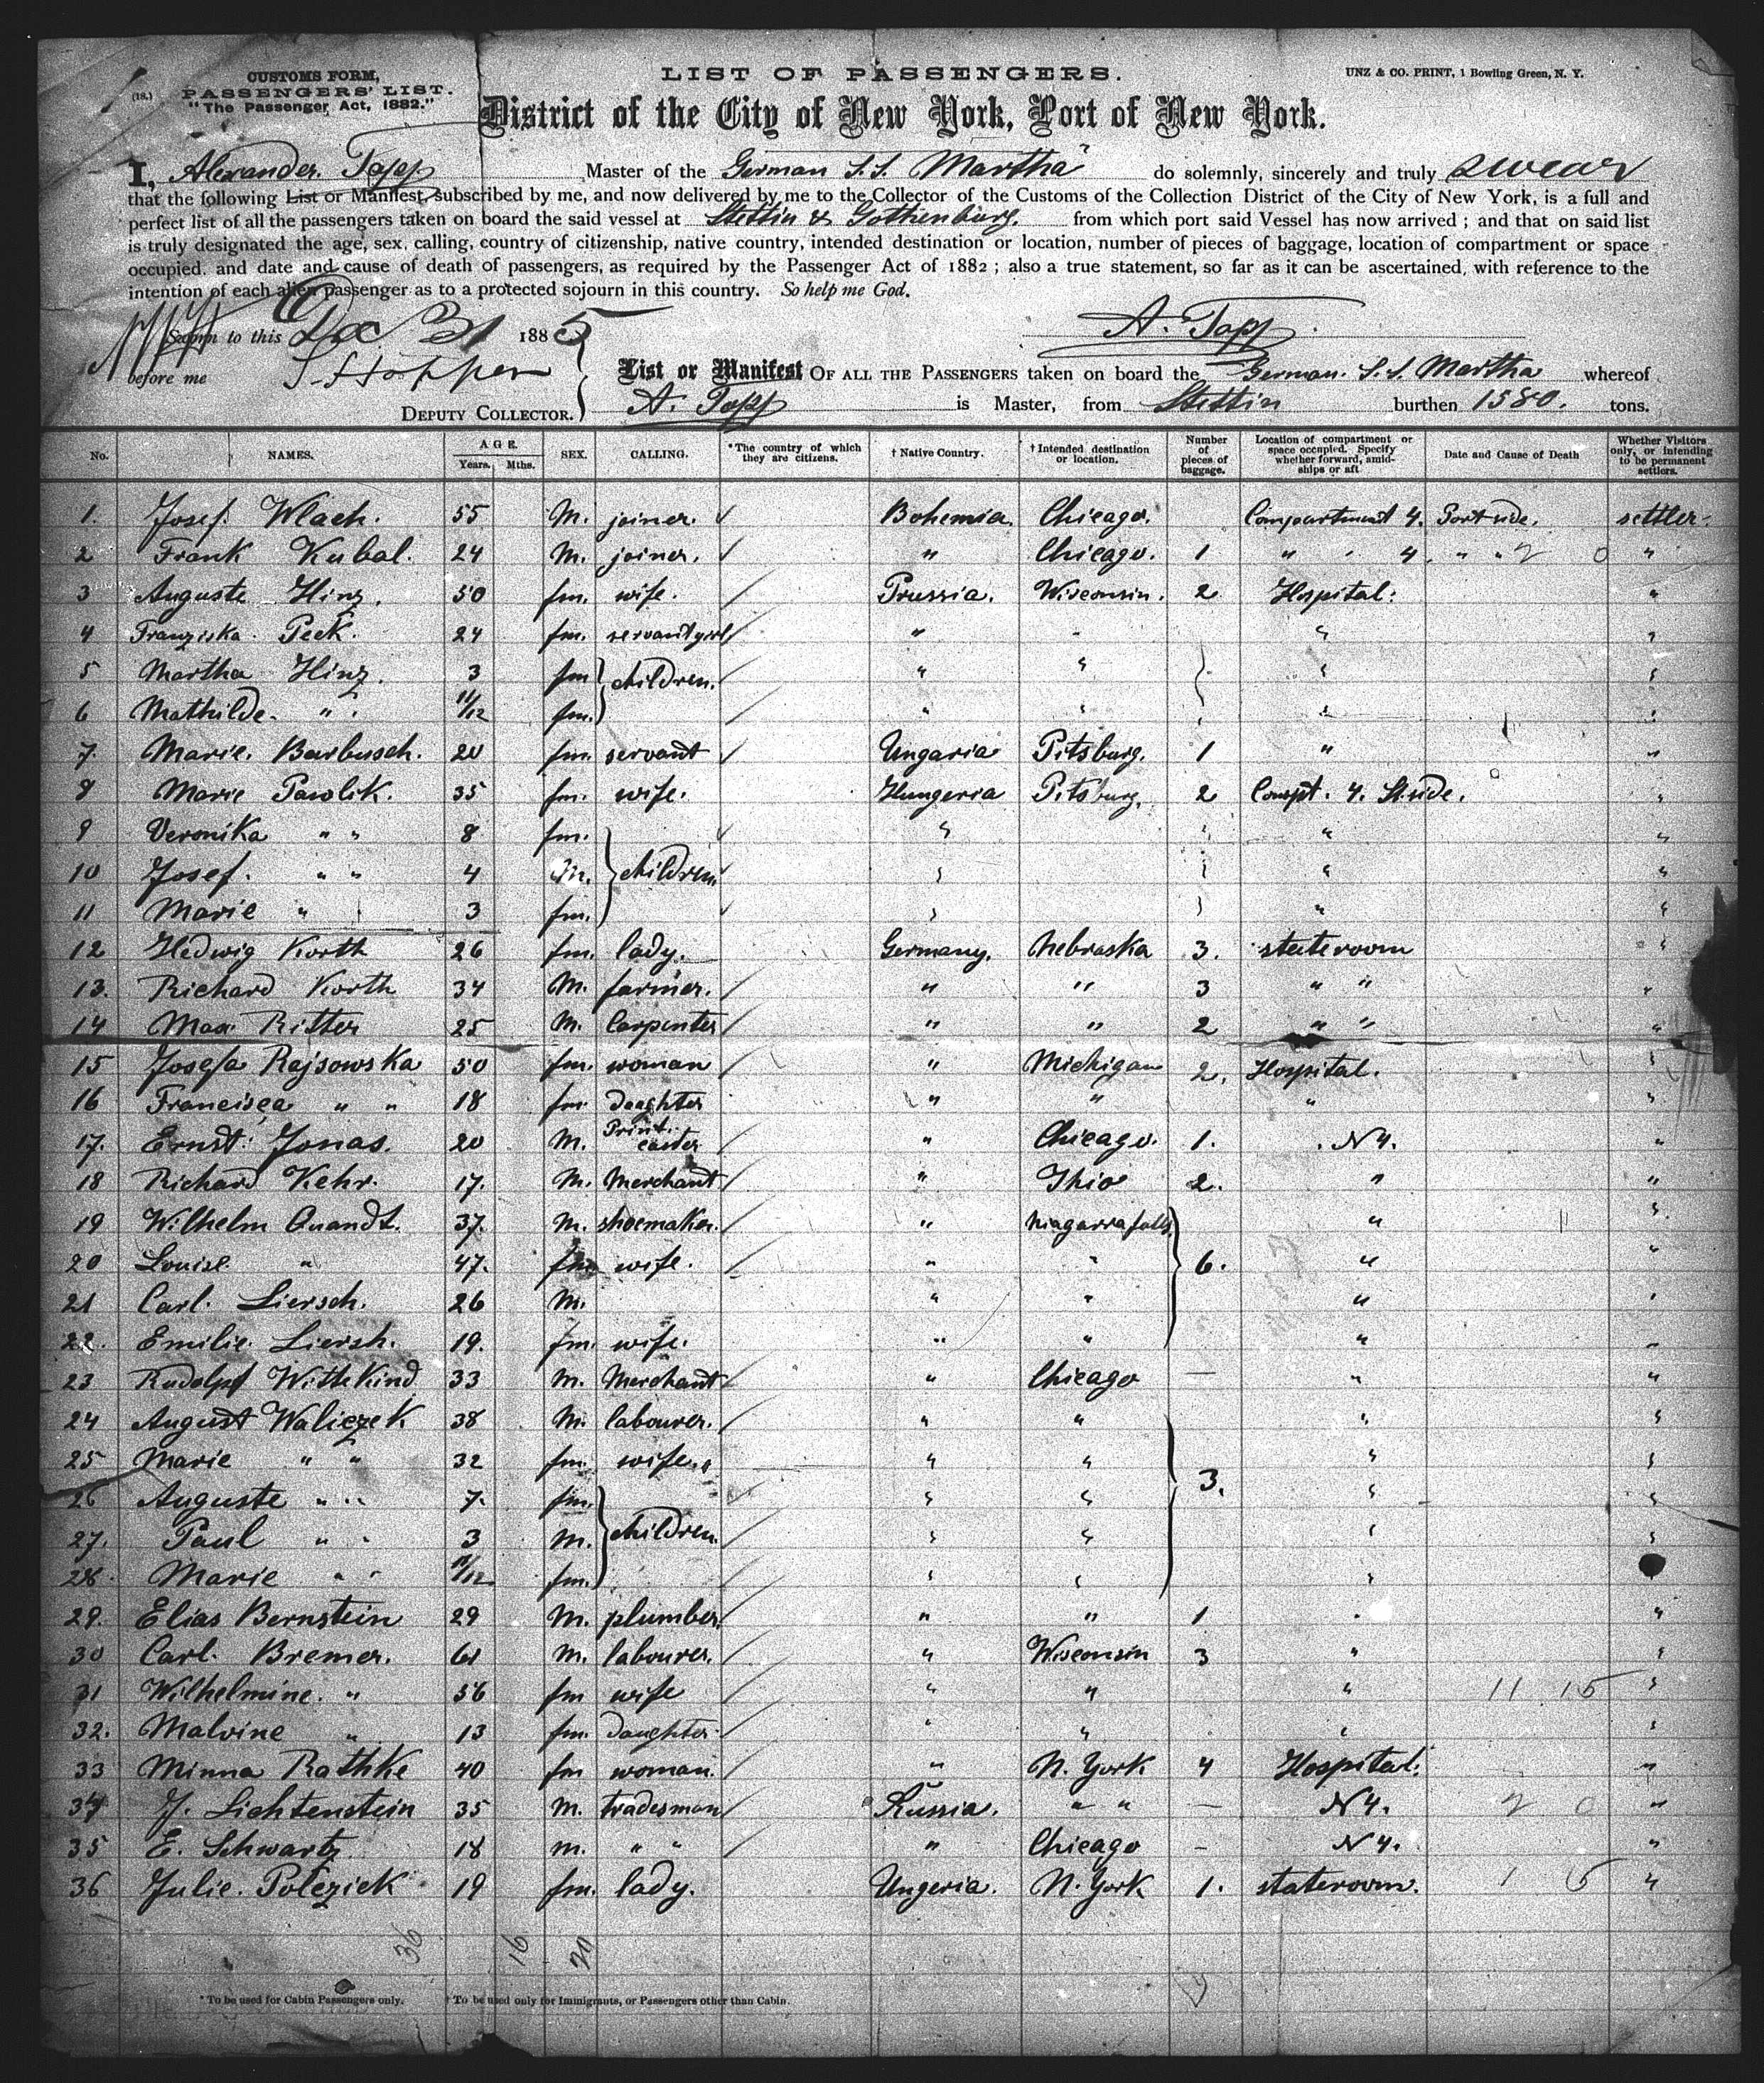 CUSTOMS FORM,
(18.) PASSENGERS' LIST.
"The Passenger Act, 1882."
LIST OF PASSENGERS.
UNZ & CO. PRINT, 1 Bowling Green, N. Y.
District of the City of New York, Port of New York.
I, Alexander Topp Master of the German S.S. Martha" do solemnly, sincerely and truly swear
that the following List or Manifest, subscribed by me, and now delivered by me to the Collector of the Customs of the Collection District of the City of New York, is a full and
perfect list of all the passengers taken on board the said vessel at Stettin & Gothenburg. from which port said Vessel has now arrived ; and that on said list
is truly designated the age, sex, calling, country of citizenship, native country, intended destination or location, number of pieces of baggage, location of compartment or space
occupied. and date and cause of death of passengers, as required by the Passenger Act of 1882 ; also a true statement, so far as it can be ascertained, with reference to the
intention of each alien passenger as to a protected sojourn in this country. So help me God.
Sworn to this Dec 31 1885 A. Topp.
before me S. Hopper
DEPUTY COLLECTOR.
List or Manifest OF ALL THE PASSENGERS taken on board the German. S.S. Martha whereof
A. Topp is Master, from Stettin burthen 1580. tons.
No. NAMES. AGE. Years. Mths. SEX. CALLING. *The country of which they are citizens. † Native Country. † Intended destination or location. Number of pieces of baggage. Location of compartment or space occupied. Specify whether forward, amidships or aft Date and Cause of Death Whether Visitors only, or intending to be permanent settlers.
1. Josef. Wlach. 55 M. joiner. Bohemia. Chicago. Compartment 4. Portside. settler.
2 Frank Kubal. 24 M. joiner. " Chicago. 1 " " 4. " " 2 0 "
3 Auguste Hinz. 50 fm. wife. Prussia. Wisconsin. 2 Hospital. "
4 Franziska. Peek. 24 fm. servantgirl " " " "
5 Martha Hinz. 3 fm children. " " " "
6 Mathilde. " 11/12 fm. " " " "
7. Marie. Barbusch. 20 fm. servant Ungaria Pitsburg. 1 " "
8 Marie Pawlik. 35 fm. wife. Hungeria Pitsburg. 2 Compt. 4. St.side. "
9 Veronika " " 8 fm. " " "
10 Josef. " " 4 M. children " " "
11 Marie " 3 fm. " " "
12 Hedwig Korth 26 fm. lady. Germany. Nebraska 3. stateroom "
13. Richard Korth 34 M. farmer. " " 3 " " "
14 Max Ritter 25 M. Carpenter " " 2 " " "
15 Josefa Rajsowska 50 fm. woman " Michigan 2. Hospital. "
16 Francisca " " 18 fm daughter " " " "
17. Ernst. Jonas. 20 M. Print. caster " Chicago. 1. N4. "
18 Richard Kehr. 17. M. Merchant " Ihio 2. " "
19 Wilhelm Quandt. 37. M. shoemaker. " Niagarrafalls " "
20 Louise. " 47. fm. wife. " " 6. " "
21 Carl. Liersch. 26 M. " " " "
22. Emilie. Liersh. 19. fm. wife. " " " "
23 Rudolpf Wittekind 33 M. Merchant " Chicago — " "
24 August Waliczek 38 M. labourer. " " " "
25 Marie " " 32 fm. wife. " " 3. " "
26 Auguste " " 7. fm. " " " "
27. Paul " " 3 M. children. " " " "
28. Marie " " 11/12 fm. " " "
29. Elias Bernstein 29 M. plumber. " " 1 " "
30 Carl. Bremer. 61 M. labourer. " Wisconsin 3 " "
31 Wilhelmine. " 56 fm wife " " " 11 15 "
32. Malvine " 13 fm. daughter " " " "
33 Minna Rathke 40 fm woman. " N. York 4 Hospital. "
34 J. Lichtenstein 35 M. tradesman Russia. " " — N4. 2 0 "
35 E. Schwartz 18 m. " " " Chicago - N4. "
36 Julie. Poleziek 19 fm. lady. Ungeria. N. York 1. stateroom. 1 5 "
36 16 20
*To be used for Cabin Passengers only. † To be used only for Immigrants, or Passengers other than Cabin.